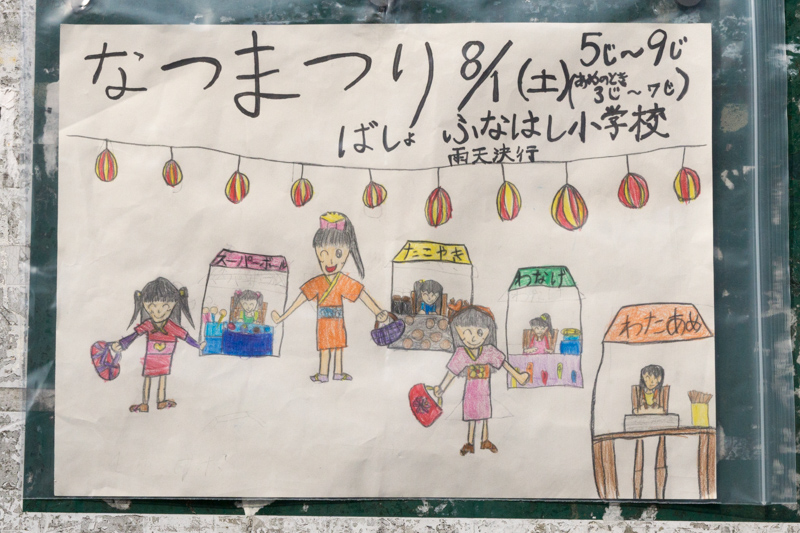 なつまつり 8/1(土) 5じ〜9じ
(あめのとき 3じ〜7じ)
ばしょ ふなはし小学校
雨天決行
スーパーボール
たこやき
わなげ
わたあめ